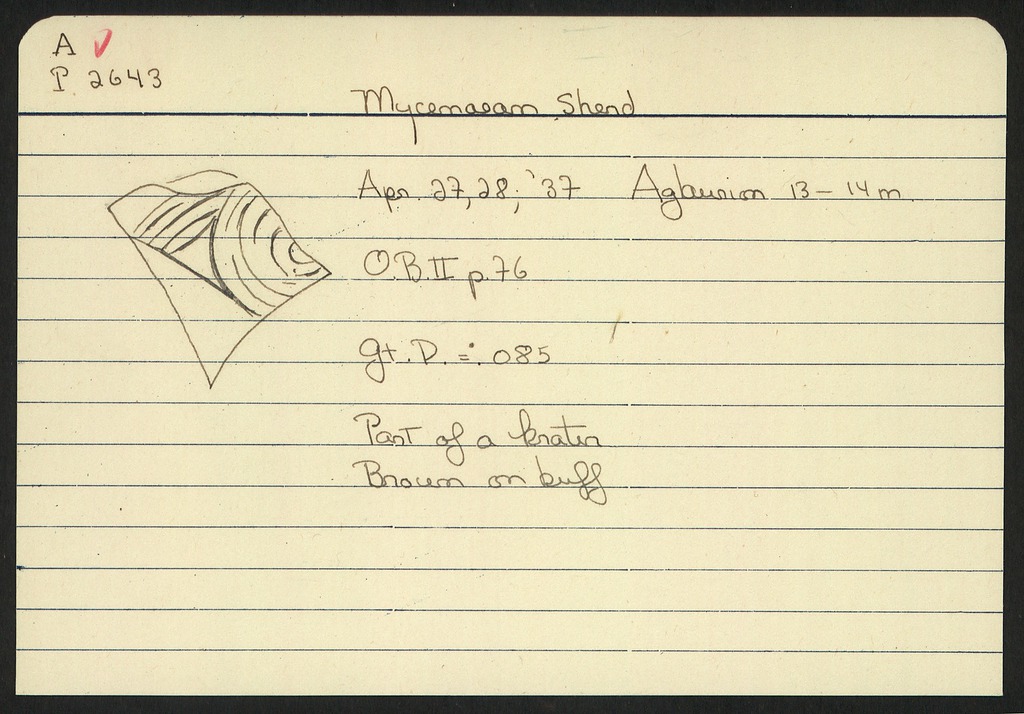 A ✓
P 2643
Mycenaean Sherd
Apr. 27, 28, '37 Aglaurion 13–14 m.
O.B. II p. 76
Gt. D. = .085
Part of a krater
Brown on buff